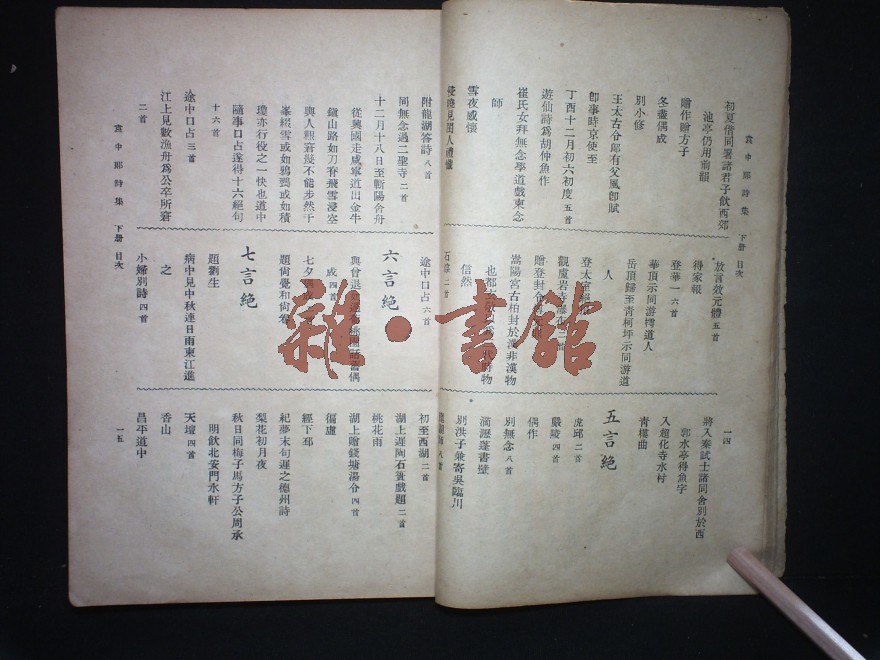 袁中郎詩集 下册 目次
一四
初夏偕同署諸君子飲西郊
池亭仍用前韻
贈作贈方子
冬盡偶成
別小修
王太古介郎有父風卽賦
卽事時京使至
丁酉十二月初六初度 五首
遊仙詩爲胡仲魚作
崔氏女拜無念學道戲柬念
師
雪夜感懷
放言效元體 五首
得家報
登華 一六首
華頂示同游樗道人
岳頂歸至靑柯坪示同游道
人
登太室
贈登封
嵩陽宮古柏封於漢非漢物
也
信然
石 二首
將入秦試士諸同舍別於西
郭水亭得魚字
入超化寺水村
靑樓曲
五言絕
虎邱 二首
嚴陵 四首
偶作
別無念 八首
滴瀝蓬書壁
別洪子兼寄吳臨川
附龍湖答詩 八首
同無念過二聖寺 二首
十二月十八日至蘄陽舍舟
從興國走咸寧道出金牛
鎭山路如刀脊飛雪浸空
輿人䠒窘漫不能步然千
峯綴雪或如鴉鸎或如積
瓊亦行役之一快也道中
隨事口占遂得十六絕句
十六首
途中口占 三首
江上見數漁舟爲公卒所窘
二首
途中口占 六首
六言絕
與曾退
桃園話舊偶
成 四首
七夕
題尙覺和尙卷
七言絕
題劉生
病中見中秋連日雨柬江進
之
小婦別詩 四首
初至西湖 二首
湖上遲陶石簣戲題 二首
桃花雨
湖上贈錢塘湯令 四首
偏盧
經下邳
紀夢末句遲之德州詩
梨花初月夜
秋日同梅子馬方子公周承
明飲北安門水軒
天壇 四首
香山
昌平道中
袁中郎詩集 下册 目次
一五
雜·書館